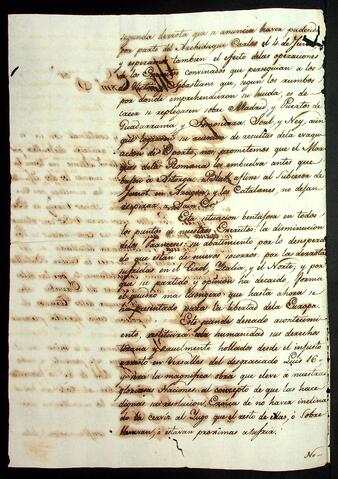 segunda derrota que se anuncia haver padecido
por parte del Archiduque Carlos el 4 de Junio
y esperarse tambien el efecto de las operaciones
convinados que persequian a los
Sebastiani que, segun los rumbos
por donde emprehendieron su huida, es de
creer se replegasen sobre Madrid y Puertos de
Guadarrama y Somosierra, Soul, y Ney, aun
de resultas de la evaqu
acion de Oporto, nos prometemos que el Mar
ques de la Romana los embuelva antes que
Astorga. Blak oprime al subcesor de
Junot en Aragon, y los Catalanes, no dejan
respirar a Saint Cir.
Esta situacion bentajosa en todos
los puntos de nuestros Exercitos, la diminucion
de los Franceses, su abatimiento por lo desespera
do que estan de nuevos socorros por las derrotas
sufridas en el Tirol, Ytalia, y el Norte, y por
que su partido y opinion ha decaido, forma
el quadro mas lisongero que hasta ahora se
ha presentado para la libertad de la Europa.
Este grande deseado acontecimi
ento, restituira a la humanidad sus derechos
cruelmente hollados desde el injusto
en Versalles del desgraciado Luis 16-
sera la magnifica obra que eleve a nuestras
gloriosas Naciones al concepto de que las hace
dignas su resolucion eroica de no haver inclina
do la cerviz al Yugo que el resto de ellas, ó sobre
llevavan, ó estavan proximas a sufrir.
No-